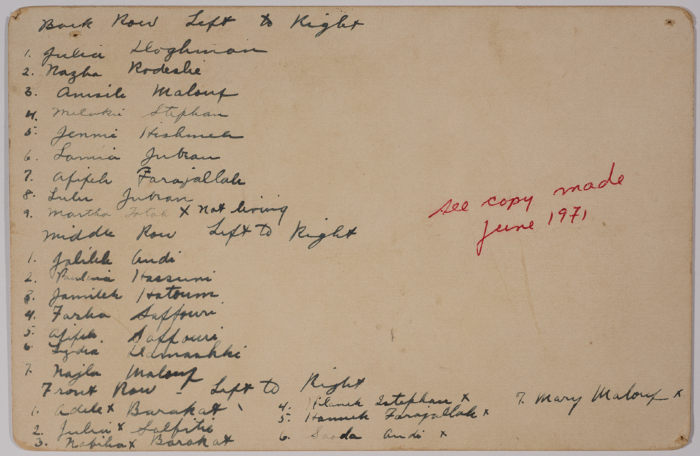 Back Row Left to Right
1. Julia Doghman
2. Nazha Rodeslie
3. Anisih Malouf
4. Milakie Stephan
5. Jennie Hishmeh
6. Lamia Jubran
7. Afifeh Farajallah
8. Lulu Jubran
9. Martha Totah x not living
Middle Row Left to Right
1. Jalileh Audi
2. Hassuni
3. Jamileh Hatoum
4. Farha Saffouri
5. Afifeh Saffouri
6. Lydia Dimashki
7. Najla Malouf
Front Row - Left to Right
1. Adele x Barakat
2. Julia x Salfiti
3. Nabiha x Barakat
4. Istephan x
5. Hanneh Farajallah x
6. Saada Audi x
7. Mary Malouf x
see copy made
June 1971